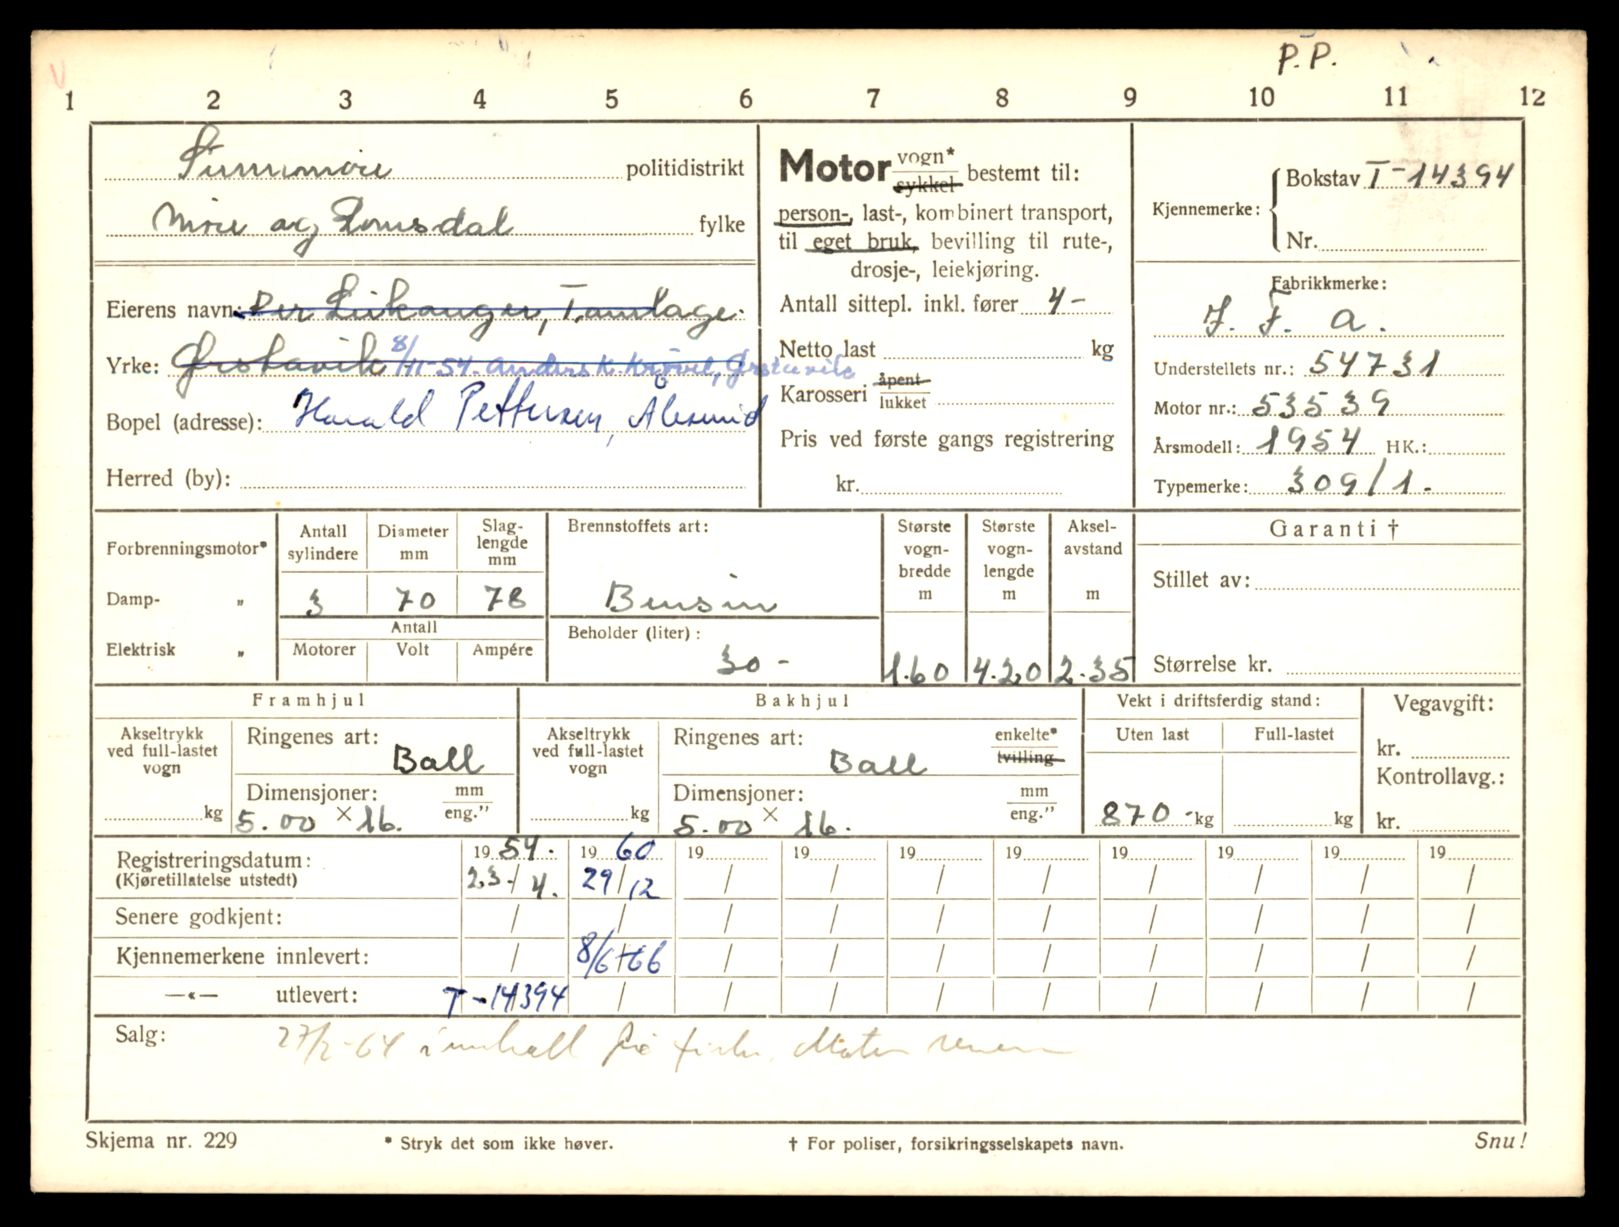 P. P.
1 2 3 4 5 6 7 8 9 10 11 12
Sunnmøre politidistrikt
Møre og Romsdal fylke
Eierens navn: Per Leikanger, Tamlage.
Yrke: Ørstavik 8/11-54. Anders K. Krøvel, Ørstavik
Bopel (adresse): Harald Pettersen, Ålesund
Herred (by):
Motor vogn* sykkel bestemt til:
person-, last-, kombinert transport,
til eget bruk, bevilling til rute-,
drosje-, leiekjøring.
Antall sittepl. inkl. fører 4-
Netto last kg
Karosseri åpent lukket
Pris ved første gangs registrering
kr.
Kjennemerke: Bokstav T-14394
Nr.
Fabrikkmerke:
J. F. A.
Understellets nr.: 54731
Motor nr.: 53539
Årsmodell: 1954 HK.:
Typemerke: 309/1.
Forbrenningsmotor*
Damp- „
Elektrisk „
Antall sylindere Diameter mm Slag-lengde mm
3 70 78
Antall
Motorer Volt Ampére
Brennstoffets art:
Bensin
Beholder (liter):
30-
Største vogn-bredde m Største vogn-lengde m Aksel-avstand m
1.60 4.20 2.35
Garanti †
Stillet av:
Størrelse kr.
Framhjul
Akseltrykk ved full-lastet vogn
kg
Ringenes art: Ball
Dimensjoner: mm eng."
5.00 × 16.
Bakhjul
Akseltrykk ved full-lastet vogn
kg
Ringenes art: Ball enkelte* tvilling
Dimensjoner: mm eng."
5.00 × 16.
Vekt i driftsferdig stand:
Uten last Full-lastet
870-kg kg
Vegavgift:
kr.
Kontrollavg.:
kr.
Registreringsdatum: 19 54. 19 60 19 19 19 19 19 19 19 19
(Kjøretillatelse utstedt) 23./4. 29/12 / / / / / / / /
Senere godkjent: / / / / / / / / / /
Kjennemerkene innlevert: / 8/6-66 / / / / / / / /
—«— utlevert: T-14394 / / / / / / / / /
Salg: 27/2-64
Skjema nr. 229 * Stryk det som ikke høver. † For poliser, forsikringsselskapets navn. Snu!